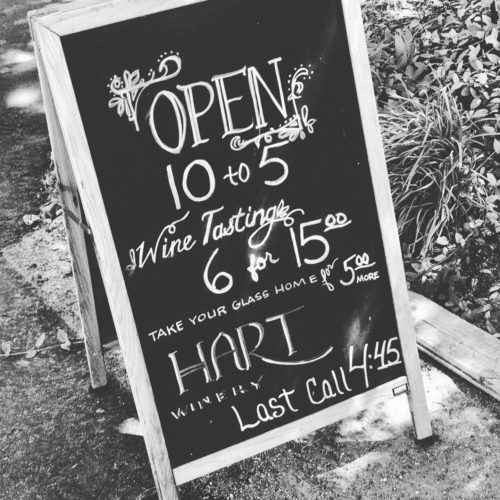 OPEN
10 to 5
Wine Tasting
6 for 15.00
TAKE YOUR GLASS HOME for 5.00 MORE
HART
WINERY
Last Call 4:45